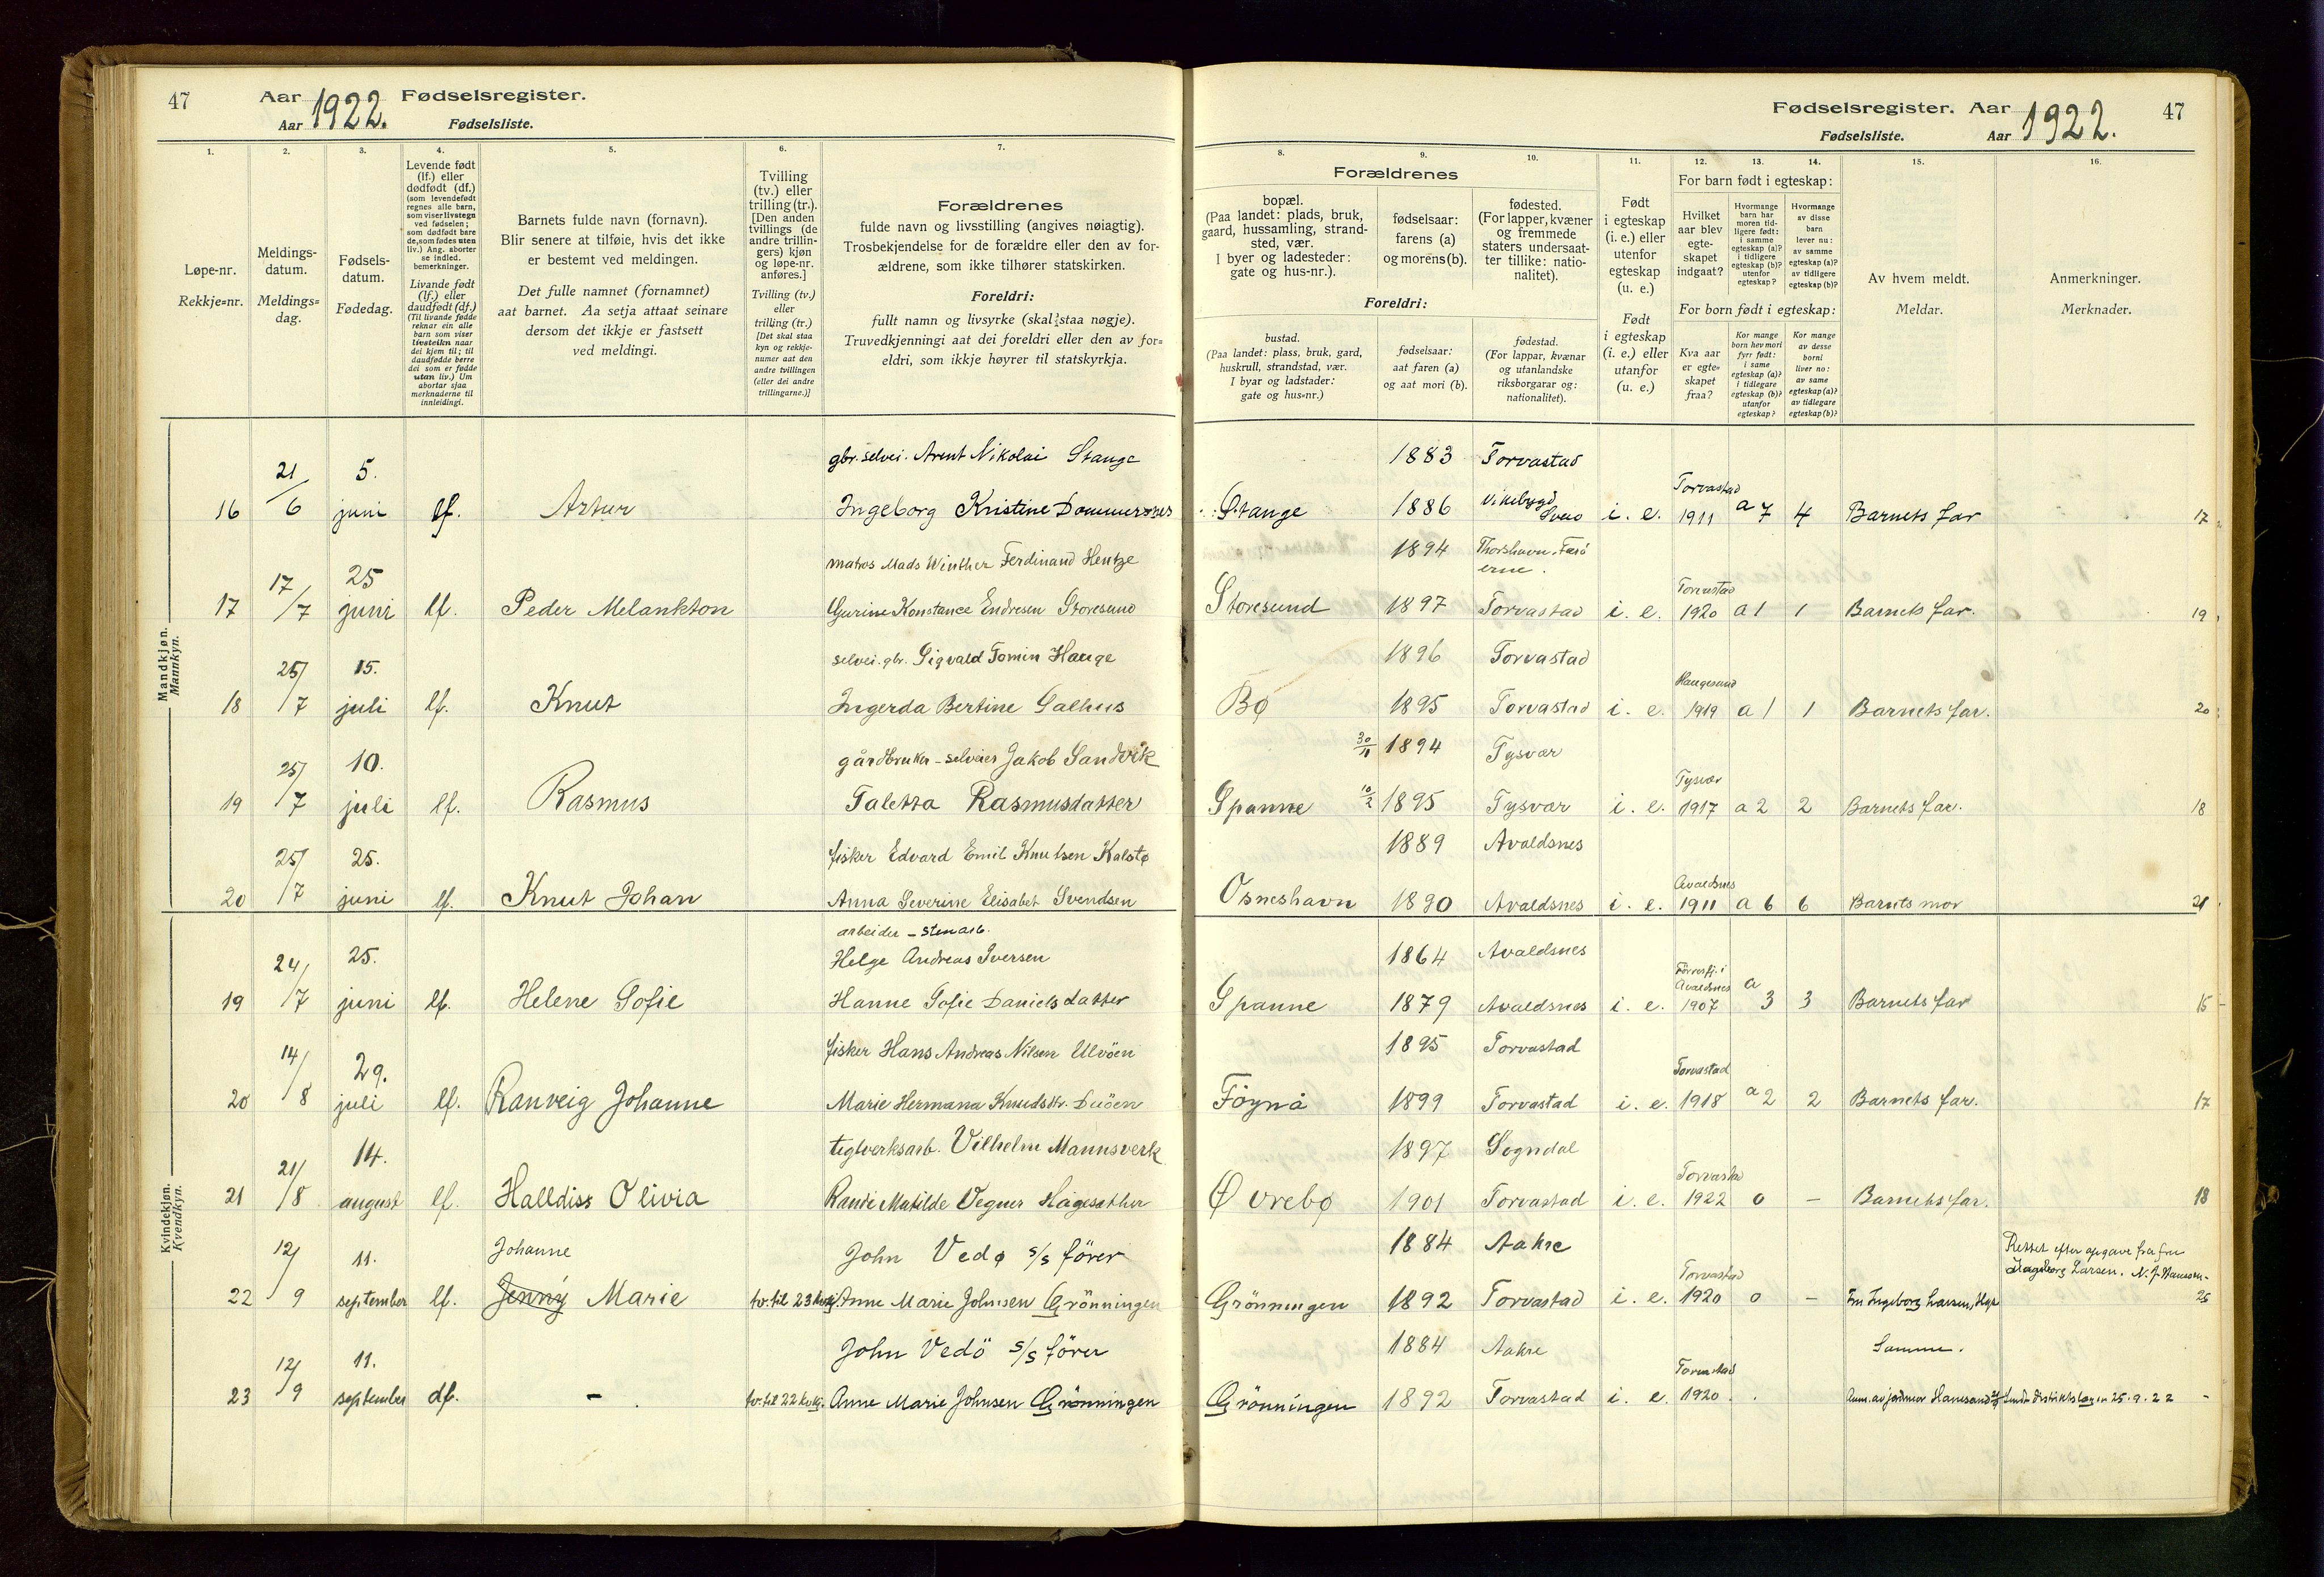 47
Aar 1922. Fødselsregister.
Aar Fødselsliste.
1.
2.
3.
4.
5.
6.
7.
Løpe-nr.
Rekkje=nr.
Meldings-
datum.
Meldings=
dag.
Fødsels-
datum.
Fødedag.
Levende født
(lf.) eller
dødfødt (df.)
(som levendefødt
regnes alle barn,
som viser livstegn
ved fødselen;
som dødfødt bare
de, som fødes uten
liv.) Ang. aborter
se indled.
bemerkninger.
Livande født
(lf.) eller
daudfødt (df.)
(Til livande fødde
reknar ein alle
barn som viser
livsteikn naar
dei kjem til; til
daudfødde berre
dei som er fødde
utan liv.) Um
abortar sjaa
merknaderne til
innleidingi.
Barnets fulde navn (fornavn).
Blir senere at tilføie, hvis det ikke
er bestemt ved meldingen.
Det fulle namnet (fornamnet)
aat barnet. Aa setja attaat seinare
dersom det ikkje er fastsett
ved meldingi.
Tvilling
(tv.) eller
trilling (tr.).
[Den anden
tvillings (de
andre trillin-
gers) kjøn
og løpe-nr.
anføres.]
Tvilling (tv.)
eller
trilling (tr.)
[Det skal staa
kyn og rekkje-
numer aat den
andre tvillingen
(eller dei andre
trillingarne.)]
Forældrenes
fulde navn og livsstilling (angives nøiagtig).
Trosbekjendelse for de forældre eller den av for-
ældrene, som ikke tilhører statskirken.
Foreldri:
fullt namn og livsyrke (skal staa nøgje).
Truvedkjenningi aat dei foreldri eller den av for=
eldri, som ikkje høyrer til statskyrkja.
Mandkjøn.
Mankyn.
16 21/6 5. juni lf. Artur
gbr. selvei. Arent Nikolai Stange
Ingeborg Kristine Dommersnes
17 17/7 25 juni lf. Peder Melankton
matros Mads Winther Ferdinand Hentze
Gurine Konstance Endresen Storesund
18 25/7 15. juli lf. Knut
selvei. gbr. Sigvald Tomin Hauge
Ingerda Bertine Salhus
19 25/7 10. juli lf. Rasmus
gårdbruker - selveier Jakob Sandvik
Taletta Rasmusdatter
20 25/7 25. juni lf. Knut Johan
fisker Edvard Emil Knutsen Kalstø
Anna Severine Elisabet Svendsen
Kvindekjøn.
Kvendkyn.
19 24/7 25. juni lf. Helene Sofie
arbeider - stenarb.
Helge Andreas Iversen
Hanne Sofie Danielsdatter
20 14/8 29. juli lf. Ranveig Johanne
fisker Hans Andreas Nilsen Ulvöen
Marie Hermana Knudsdtr. Duöen
21 21/8 14. august lf. Halldiss Olivia
teglverksarb. Vilhelm Mannsverk
Randi Matilde Vegner Hagesæther
22 12/9 11. september lf. Johanne
Jenny Marie tv. til 23 kvkj.
John Vedø s/s fører
Anne Marie Johnsen Grönningen
23 12/9 11. september df. - tv. til 22 kvkj.
John Vedö s/s förer
Anne Marie Johnsen Grönningen
Fødselsregister. Aar 1922. 47
Fødselsliste. Aar
8.
9.
10.
11.
12.
13.
14.
15.
16.
Forældrenes
bopæl.
(Paa landet: plads, bruk,
gaard, hussamling, strand-
sted, vær.
I byer og ladesteder:
gate og hus-nr.).
fødselsaar:
farens (a)
og morens (b).
fødested.
(For lapper, kvæner
og fremmede
staters undersaat-
ter tillike: natio-
nalitet).
Foreldri:
bustad.
(Paa landet: plass, bruk, gard,
huskrull, strandstad, vær.
I byar og ladstader:
gate og hus=nr.)
fødselsaar:
aat faren (a)
og aat mori (b).
fødestad.
(For lappar, kvænar
og utanlandske
riksborgarar og:
nationalitet).
Født
i egteskap
(i. e.) eller
utenfor
egteskap
(u. e.)
Født
i egteskap
(i. e.) eller
utanfor
(u. e.)
For barn født i egteskap:
Hvilket
aar blev
egte-
skapet
indgaat?
Hvormange
barn har
moren tid-
ligere født:
i samme
egteskap (a)?
i tidligere
egteskap (b)?
utenfor
egteskap?
Hvormange
av disse
barn
lever nu:
av samme
egteskap (a)?
av tidligere
egteskap (b)?
For born født i egteskap:
Kva aar
er egte=
skapet
fraa?
Kor mange
born hev mori
fyrr født:
i same
egteskap (a)?
i tidlegare
egteskap (b)?
utanfor
egteskap?
Kor mange
av desse
borni
liver no:
av same
egteskap (a)?
av tidlegare
egteskap (b)?
Av hvem meldt.
Meldar.
Anmerkninger.
Merknader.
1883 Torvastad
Stange 1886 Vikebygd Sveio i. e. Torvastad 1911 a 7 4 Barnets far 17
1894 Thorshavn. Færöerne.
Storesund 1897 Torvastad i. e. Torvastad 1920 a 1 1 Barnets far. 19
1896 Torvastad
Bø 1895 Torvastad i. e. Haugesund 1919 a 1 1 Barnets far. 20
30/11 1894 Tysvær
Spanne 10/2 1895 Tysvær i. e. Tysvær 1917 a 2 2 Barnets far. 18
1889 Avaldsnes
Osneshavn 1890 Avaldsnes i. e. Avaldsnes 1911 a 6 6 Barnets mor 21
1864 Avaldsnes
Spanne 1879 Avaldsnes i. e. Avaldsnes 1907 a 3 3 Barnets far 15
1895 Torvastad
Föynå 1899 Torvastad i. e. Torvastad 1918 a 2 2 Barnets far. 17
1897 Sogndal
Øvrebø 1901 Torvastad i. e. Torvastad 1922 0 - Barnets far. 18
1884 Aakre
Grönningen 1892 Torvastad i. e. Torvastad 1920 0 - Fru Ingeborg Larsen, Hgs 25
Rettet efter opgave fra fru
Ingeborg Larsen. N. J. Hansson.
1884 Aakre Samme.
Grönningen 1892 Torvastad i. e. Torvastad 1920 Anm. av jordmor 25.9.22 -